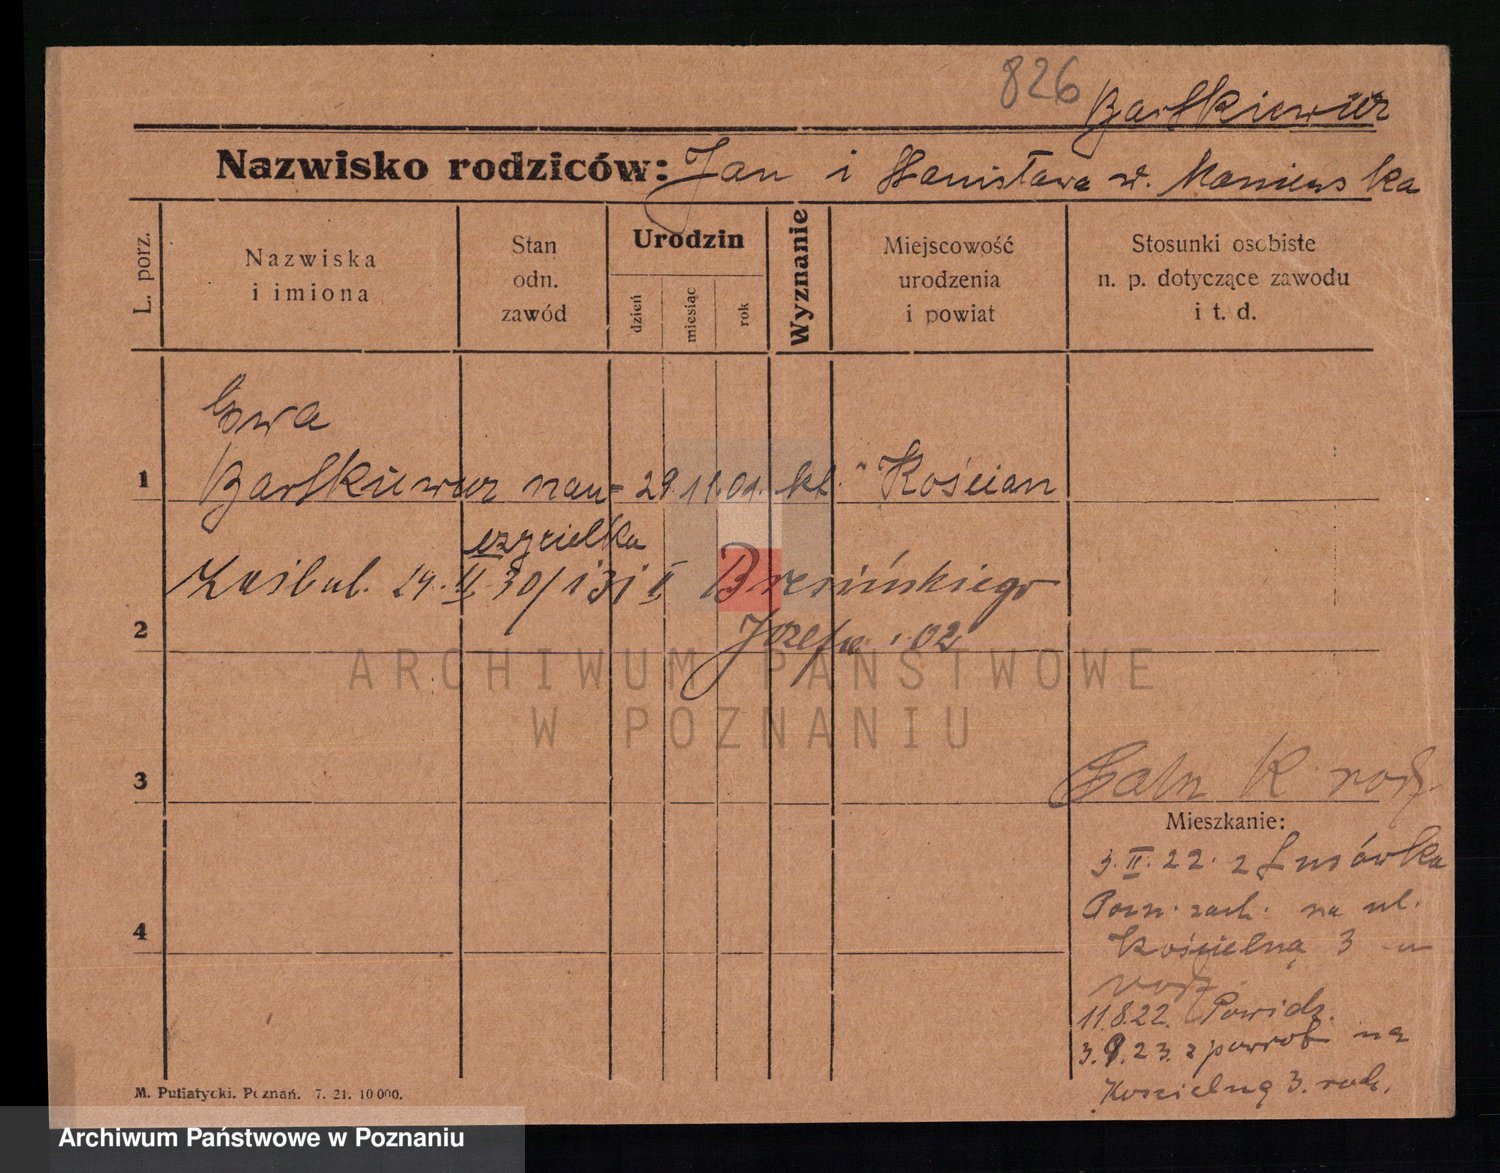 826
Bartkiewicz
Nazwisko rodziców: Jan i Stanisława z d. Maniewska
L. porz.
Nazwiska i imiona
Stan odn. zawód
Urodzin
dzień
miesiąc
rok
Wyznanie
Miejscowość urodzenia i powiat
Stosunki osobiste n. p. dotyczące zawodu i t. d.
Ewa
1 Bartkiewicz nau- 29.11.01. kt. Kościan
czycielka
29. II. 30 Brzezińskiego
2 Józefa 02
ARCHIWUM PAŃSTWOWE
W POZNANIU
3
R rodz.
Mieszkanie:
3. II. 22. z Lusówka
Pozn. zach. na ul.
4 Kościelną 3 u
rodz.
11.8.22. Powidz.
3.9.23. z powrot na
Kościelną 3. rodz.
M. Putiatycki. Poznań. 7. 21. 10 000.
Archiwum Państwowe w Poznaniu